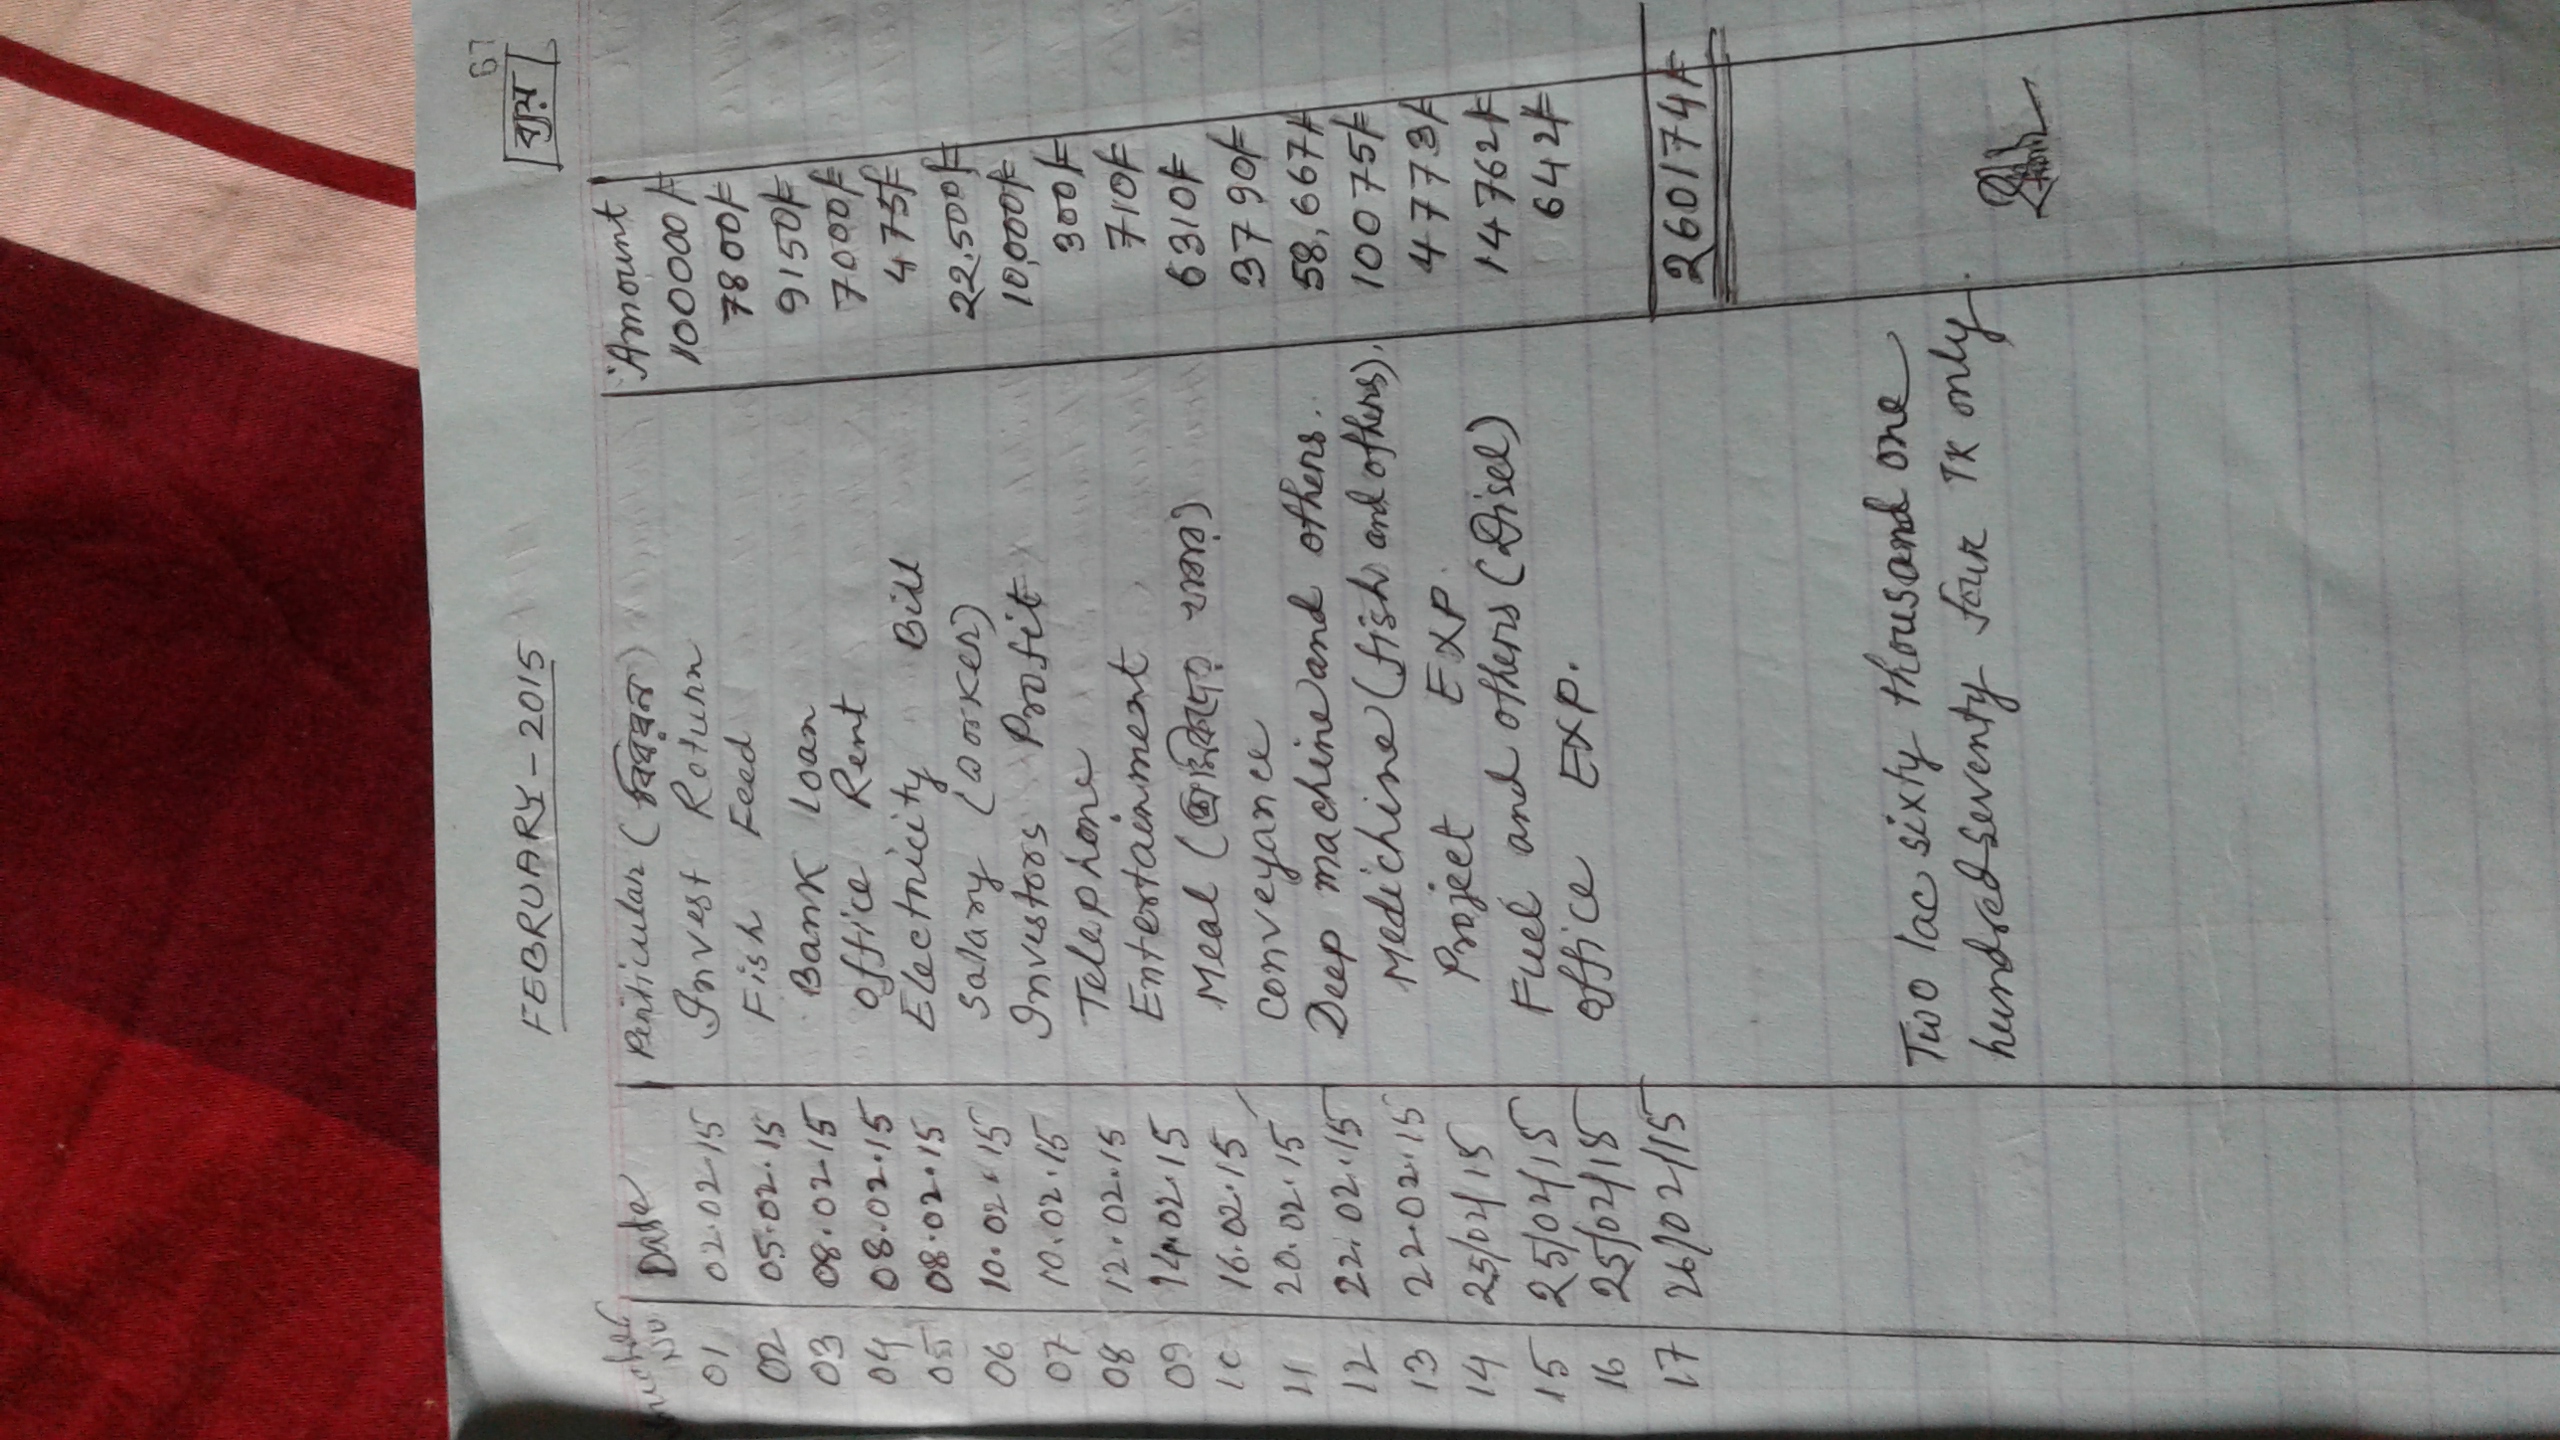 67
FEBRUARY - 2015
ব্যয়
Voucher No Date Perticular (বিবরন) Amount
01 02.02.15 Invest Return 100000/=
02 05.02.15 Fish Feed 7800/=
03 08.02.15 Bank loan 9150/=
04 08.02.15 office Rent 7000/=
05 08.02.15 Electricity Bill 475/=
06 10.02.15 Salary (Worker) 22,500/=
07 10.02.15 Investors Profit 10,000/=
08 12.02.15 Telephone 300/=
09 14.02.15 Entertainment 710/=
10 16.02.15 Meal (শ্রমিকদের খাবার) 6310/=
11 20.02.15 conveyance 3790/=
12 22.02.15 Deep machine and others. 58,667/=
13 22.02.15 Medichine (fish and others). 10075/=
14 25/02/15 Project EXP. 4773/=
15 25/02/15 Fuel and others (Disel) 14762/=
16 25/02/15 office EXP. 642/=
17 26/02/15
260174/=
Two lac sixty thousand one
hundred seventy four TK only.